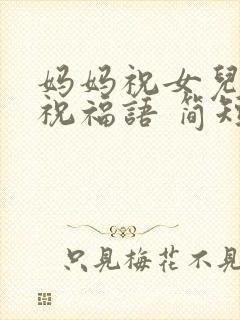 妈妈祝女兒
祝福語 简短
只見梅花不見